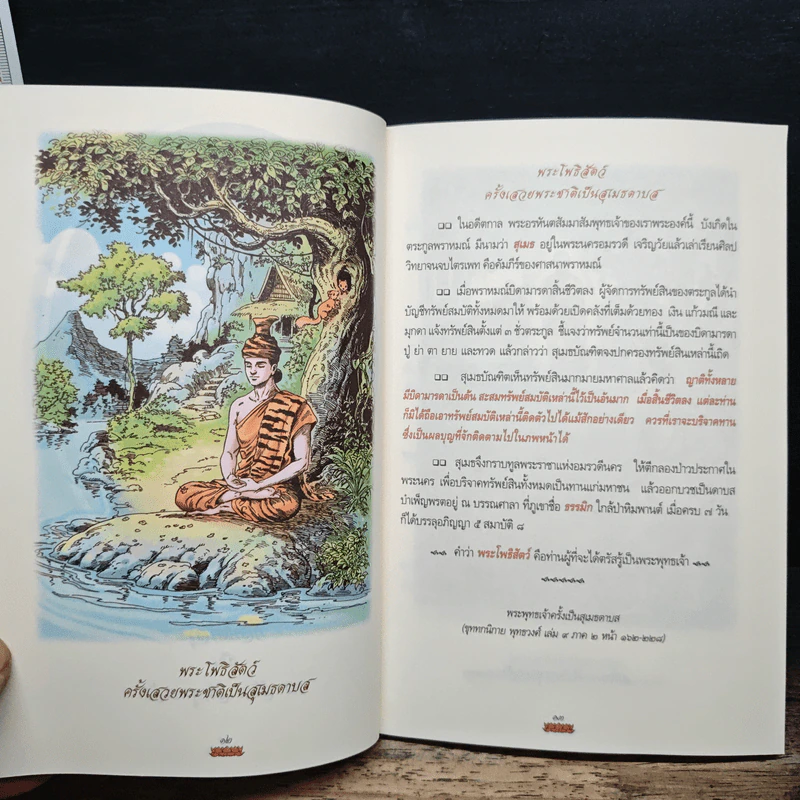 พระโพธิสัตว์
ครั้งเสวยพระชาติเป็นสุเมธดาบส
๑๒
พระโพธิสัตว์
ครั้งเสวยพระชาติเป็นสุเมธดาบส
ในอดีตกาล พระอรหันตสัมมาสัมพุทธเจ้าของเราพระองค์นี้ บังเกิดใน
ตระกูลพราหมณ์ มีนามว่า สุเมธ อยู่ในพระนครอมรวดี เจริญวัยแล้วเล่าเรียนศิลป
วิทยาจนจบไตรเพท คือคัมภีร์ของศาสนาพราหมณ์
เมื่อพราหมณ์บิดามารดาสิ้นชีวิตลง ผู้จัดการทรัพย์สินของตระกูลได้นำ
บัญชีทรัพย์สมบัติทั้งหมดมาให้ พร้อมด้วยเปิดคลังที่เต็มด้วยทอง เงิน แก้วมณี และ
มุกดา แจ้งทรัพย์สินตั้งแต่ ๓ ชั่วตระกูล ชี้แจงว่าทรัพย์จำนวนเท่านี้เป็นของบิดามารดา
ปู่ ย่า ตา ยาย และทวด แล้วกล่าวว่า สุเมธบัณฑิตจงปกครองทรัพย์สินเหล่านี้เถิด
สุเมธบัณฑิตเห็นทรัพย์สินมากมายมหาศาลแล้วคิดว่า ญาติทั้งหลาย
มีบิดามารดาเป็นต้น สะสมทรัพย์สมบัติเหล่านี้ไว้เป็นอันมาก เมื่อสิ้นชีวิตลง แต่ละท่าน
ก็มิได้ถือเอาทรัพย์สมบัติเหล่านี้ติดตัวไปได้แม้สักอย่างเดียว ควรที่เราจะบริจาคทาน
ซึ่งเป็นผลบุญที่จักติดตามไปในภพหน้าได้
สุเมธจึงกราบทูลพระราชาแห่งอมรวดีนคร ให้ตีกลองป่าวประกาศใน
พระนคร เพื่อบริจาคทรัพย์สินทั้งหมดเป็นทานแก่มหาชน แล้วออกบวชเป็นดาบส
บำเพ็ญพรตอยู่ ณ บรรณศาลา ที่ภูเขาชื่อ ธรรมิก ใกล้ป่าหิมพานต์ เมื่อครบ ๗ วัน
ก็ได้บรรลุอภิญญา ๕ สมาบัติ ๘
คำว่า พระโพธิสัตว์ คือท่านผู้ที่จะได้ตรัสรู้เป็นพระพุทธเจ้า
พระพุทธเจ้าครั้งเป็นสุเมธดาบส
(ขุททกนิกาย พุทธวงศ์ เล่ม ๙ ภาค ๒ หน้า ๑๖๒-๒๒๘)
๑๓